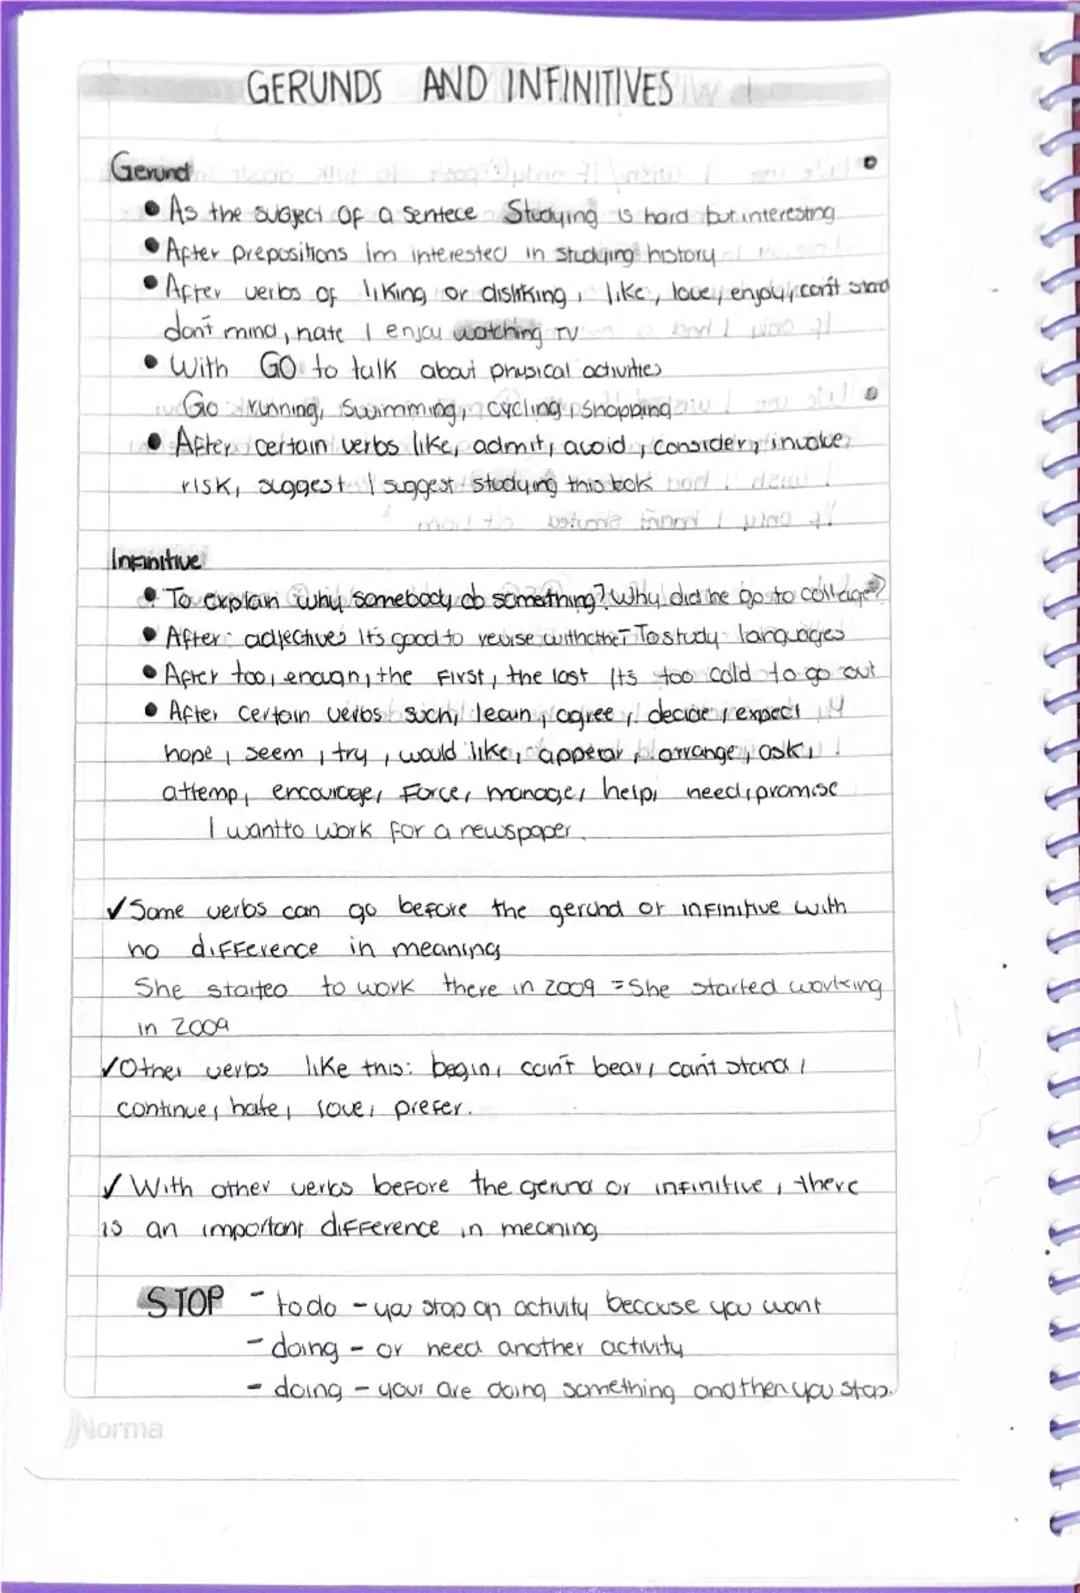 GERUNDS AND INFINITIVES
Gerund
• As the subject of a sentece Studying is hard but interesting
• After prepositions Im interested in studying history
• After verbs of liking or disliking, like, love, enjoy, can't stand
don't mind, hate I enjoy watching TV
• With GO to talk about physical activities
Go running, swimming, cycling, shopping
• After certain verbs like, admit, avoid, consider, involve,
risk, suggest I suggest studying this bok
Infinitive
• To explain why somebody do something? Why did he go to college?
• After: adjectives It's good to revise To study languages
• After too, enough, the first, the last It's too cold to go out
• After certain verbs such, learn, agree, decide, expect
hope, seem, try, would like, appear, arrange, ask,
attemp, encourage, force, manage, help, need, promise
I want to work for a newspaper.
✓ Some verbs can go before the gerund or infinitive with
no difference in meaning
She started to work there in 2009 = She started working
in 2009
✓ Other verbs like this: begin, can't bear, can't stand,
continue, hate, love, prefer.
✓ With other verbs before the gerund or infinitive, there
is an important difference in meaning
STOP - to do - you stop an activity because you want
- doing - or need another activity
- doing - your are doing something and then you stop.
Norma